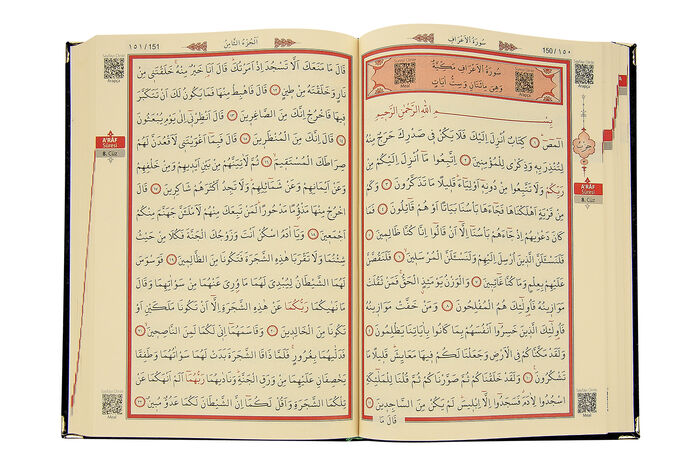 150 / ١٥٠
سُورَةُ الْاَعْرَافِ
Sayfayı Dinle
Arapça
Sureyi Dinle
Meal
سُورَةُ الْاَعْرَافِ مَكِّيَّةٌ
وَهِيَ مِائَتَانِ وَسِتُّ اٰيَاتٍ
Arapça
بِسْمِ اللّٰهِ الرَّحْمٰنِ الرَّحِيمِ
الٓمٓصٓ ١ كِتَابٌ اُنْزِلَ اِلَيْكَ فَلَا يَكُنْ فِى صَدْرِكَ حَرَجٌ مِنْهُ
لِتُنْذِرَ بِهِ وَذِكْرٰى لِلْمُؤْمِنِينَ ٢ اِتَّبِعُوا مَٓا اُنْزِلَ اِلَيْكُمْ مِنْ
رَبِّكُمْ وَلَا تَتَّبِعُوا مِنْ دُونِهِٓ اَوْلِيَٓاءَ قَلِيلًا مَا تَذَكَّرُونَ ٣ وَكَمْ
مِنْ قَرْيَةٍ اَهْلَكْنَاهَا فَجَٓاءَهَا بَأْسُنَا بَيَاتًا اَوْ هُمْ قَٓائِلُونَ ٤ فَمَا
كَانَ دَعْوٰيهُمْ اِذْ جَٓاءَهُمْ بَأْسُنَٓا اِلَّٓا اَنْ قَالُٓوا اِنَّا كُنَّا ظَالِمِينَ ٥
فَلَنَسْـَٔلَنَّ الَّذِينَ اُرْسِلَ اِلَيْهِمْ وَلَنَسْـَٔلَنَّ الْمُرْسَلِينَ ٦ فَلَنَقُصَّنَّ
عَلَيْهِمْ بِعِلْمٍ وَمَا كُنَّا غَٓائِبِينَ ٧ وَالْوَزْنُ يَوْمَئِذٍ الْحَقُّ فَمَنْ ثَقُلَتْ
مَوَازِينُهُ فَاُو۬لٰٓئِكَ هُمُ الْمُفْلِحُونَ ٨ وَمَنْ خَفَّتْ مَوَازِينُهُ
فَاُو۬لٰٓئِكَ الَّذِينَ خَسِرُٓوا اَنْفُسَهُمْ بِمَا كَانُوا بِاٰيَاتِنَا يَظْلِمُونَ ٩
وَلَقَدْ مَكَّنَّاكُمْ فِى الْاَرْضِ وَجَعَلْنَا لَكُمْ فِيهَا مَعَايِشَ قَلِيلًا مَا
تَشْكُرُونَ ١٠ وَلَقَدْ خَلَقْنَاكُمْ ثُمَّ صَوَّرْنَاكُمْ ثُمَّ قُلْنَا لِلْمَلٰٓئِكَةِ
اسْجُدُوا لِاٰدَمَ فَسَجَدُٓوا اِلَّٓا اِبْلِيسَ لَمْ يَكُنْ مِنَ السَّاجِدِينَ ١١
قَالَ مَا
حزب
A'RÂF
Sûresi
8. Cüz
Sayfayı Dinle
Meal
اَلْجُزْءُ الثَّامِنُ
١٥١ / 151
Sayfayı Dinle
Arapça
قَالَ مَا مَنَعَكَ اَلَّا تَسْجُدَ اِذْ اَمَرْتُكَ قَالَ اَنَا۬ خَيْرٌ مِنْهُ خَلَقْتَنِى مِنْ
نَارٍ وَخَلَقْتَهُ مِنْ طِينٍ ١٢ قَالَ فَاهْبِطْ مِنْهَا فَمَا يَكُونُ لَكَ اَنْ تَتَكَبَّرَ
فِيهَا فَاخْرُجْ اِنَّكَ مِنَ الصَّاغِرِينَ ١٣ قَالَ اَنْظِرْنِٓى اِلٰى يَوْمِ يُبْعَثُونَ
١٤ قَالَ اِنَّكَ مِنَ الْمُنْظَرِينَ ١٥ قَالَ فَبِمَٓا اَغْوَيْتَنِى لَاَقْعُدَنَّ لَهُمْ
صِرَاطَكَ الْمُسْتَقِيمَ ١٦ ثُمَّ لَاٰتِيَنَّهُمْ مِنْ بَيْنِ اَيْدِيهِمْ وَمِنْ خَلْفِهِمْ
وَعَنْ اَيْمَانِهِمْ وَعَنْ شَمَٓائِلِهِمْ وَلَا تَجِدُ اَكْثَرَهُمْ شَاكِرِينَ ١٧ قَالَ
اخْرُجْ مِنْهَا مَذْؤُ۫مًا مَدْحُورًا لَمَنْ تَبِعَكَ مِنْهُمْ لَاَمْلَـَٔنَّ جَهَنَّمَ مِنْكُمْ
اَجْمَعِينَ ١٨ وَيَٓا اٰدَمُ اسْكُنْ اَنْتَ وَزَوْجُكَ الْجَنَّةَ فَكُلَا مِنْ حَيْثُ
شِئْتُمَا وَلَا تَقْرَبَا هٰذِهِ الشَّجَرَةَ فَتَكُونَا مِنَ الظَّالِمِينَ ١٩ فَوَسْوَسَ
لَهُمَا الشَّيْطَانُ لِيُبْدِىَ لَهُمَا مَا وُ۫رِىَ عَنْهُمَا مِنْ سَوْاٰتِهِمَا وَقَالَ
مَا نَهٰيكُمَا رَبُّكُمَا عَنْ هٰذِهِ الشَّجَرَةِ اِلَّٓا اَنْ تَكُونَا مَلَكَيْنِ اَوْ
تَكُونَا مِنَ الْخَالِدِينَ ٢٠ وَقَاسَمَهُمَٓا اِنِّى لَكُمَا لَمِنَ النَّاصِحِينَ ٢١
فَدَلّٰيهُمَا بِغُرُورٍ فَلَمَّا ذَاقَا الشَّجَرَةَ بَدَتْ لَهُمَا سَوْاٰتُهُمَا وَطَفِقَا
يَخْصِفَانِ عَلَيْهِمَا مِنْ وَرَقِ الْجَنَّةِ وَنَادٰيهُمَا رَبُّهُمَٓا اَلَمْ اَنْهَكُمَا عَنْ
تِلْكُمَا الشَّجَرَةِ وَاَقُلْ لَكُمَٓا اِنَّ الشَّيْطَانَ لَكُمَا عَدُوٌّ مُبِينٌ ٢٢
A'RÂF
Sûresi
8. Cüz
Sayfayı Dinle
Meal